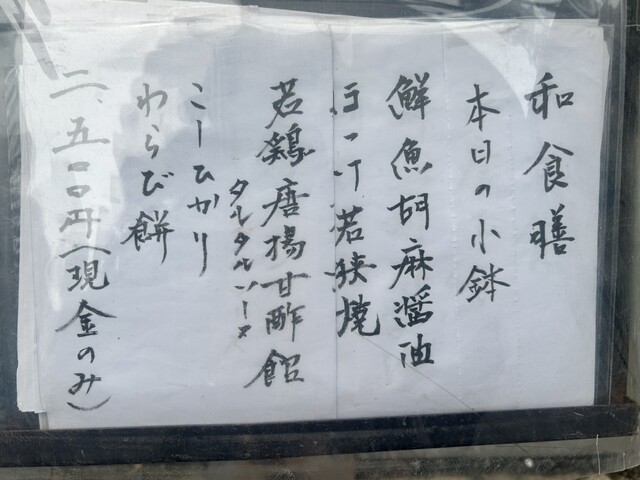 和食膳
本日の小鉢
鮮魚胡麻醤油
ほっけ若狭焼
若鶏唐揚甘酢餡
タルタルソース
こしひかり
わらび餅
二、五〇〇円(現金のみ)